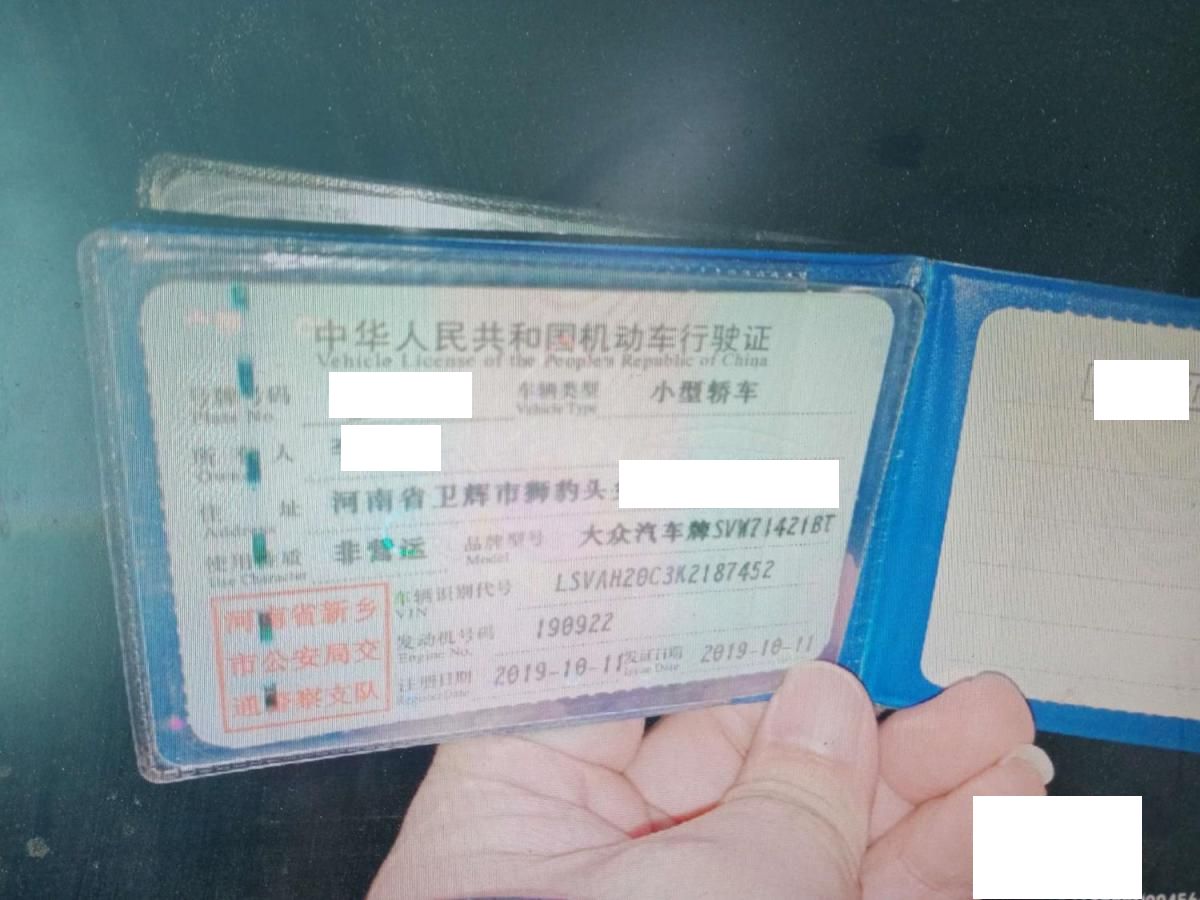 中华人民共和国机动车行驶证
Vehicle License of the People's Republic of China
号牌号码 车辆类型 小型轿车
Plate No. Vehicle Type
所 人
Owner
住 址 河南省卫辉市狮豹头
Address
使用性质 非营运 品牌型号 大众汽车牌SVW71421BT
Use Character Model
车辆识别代号 LSVAH20C3K2187452
VIN
发动机号码 190922
Engine No.
注册日期 2019-10-11 发证日期 2019-10-11
Register Date Issue Date
河南省新乡
市公安局交
通警察支队